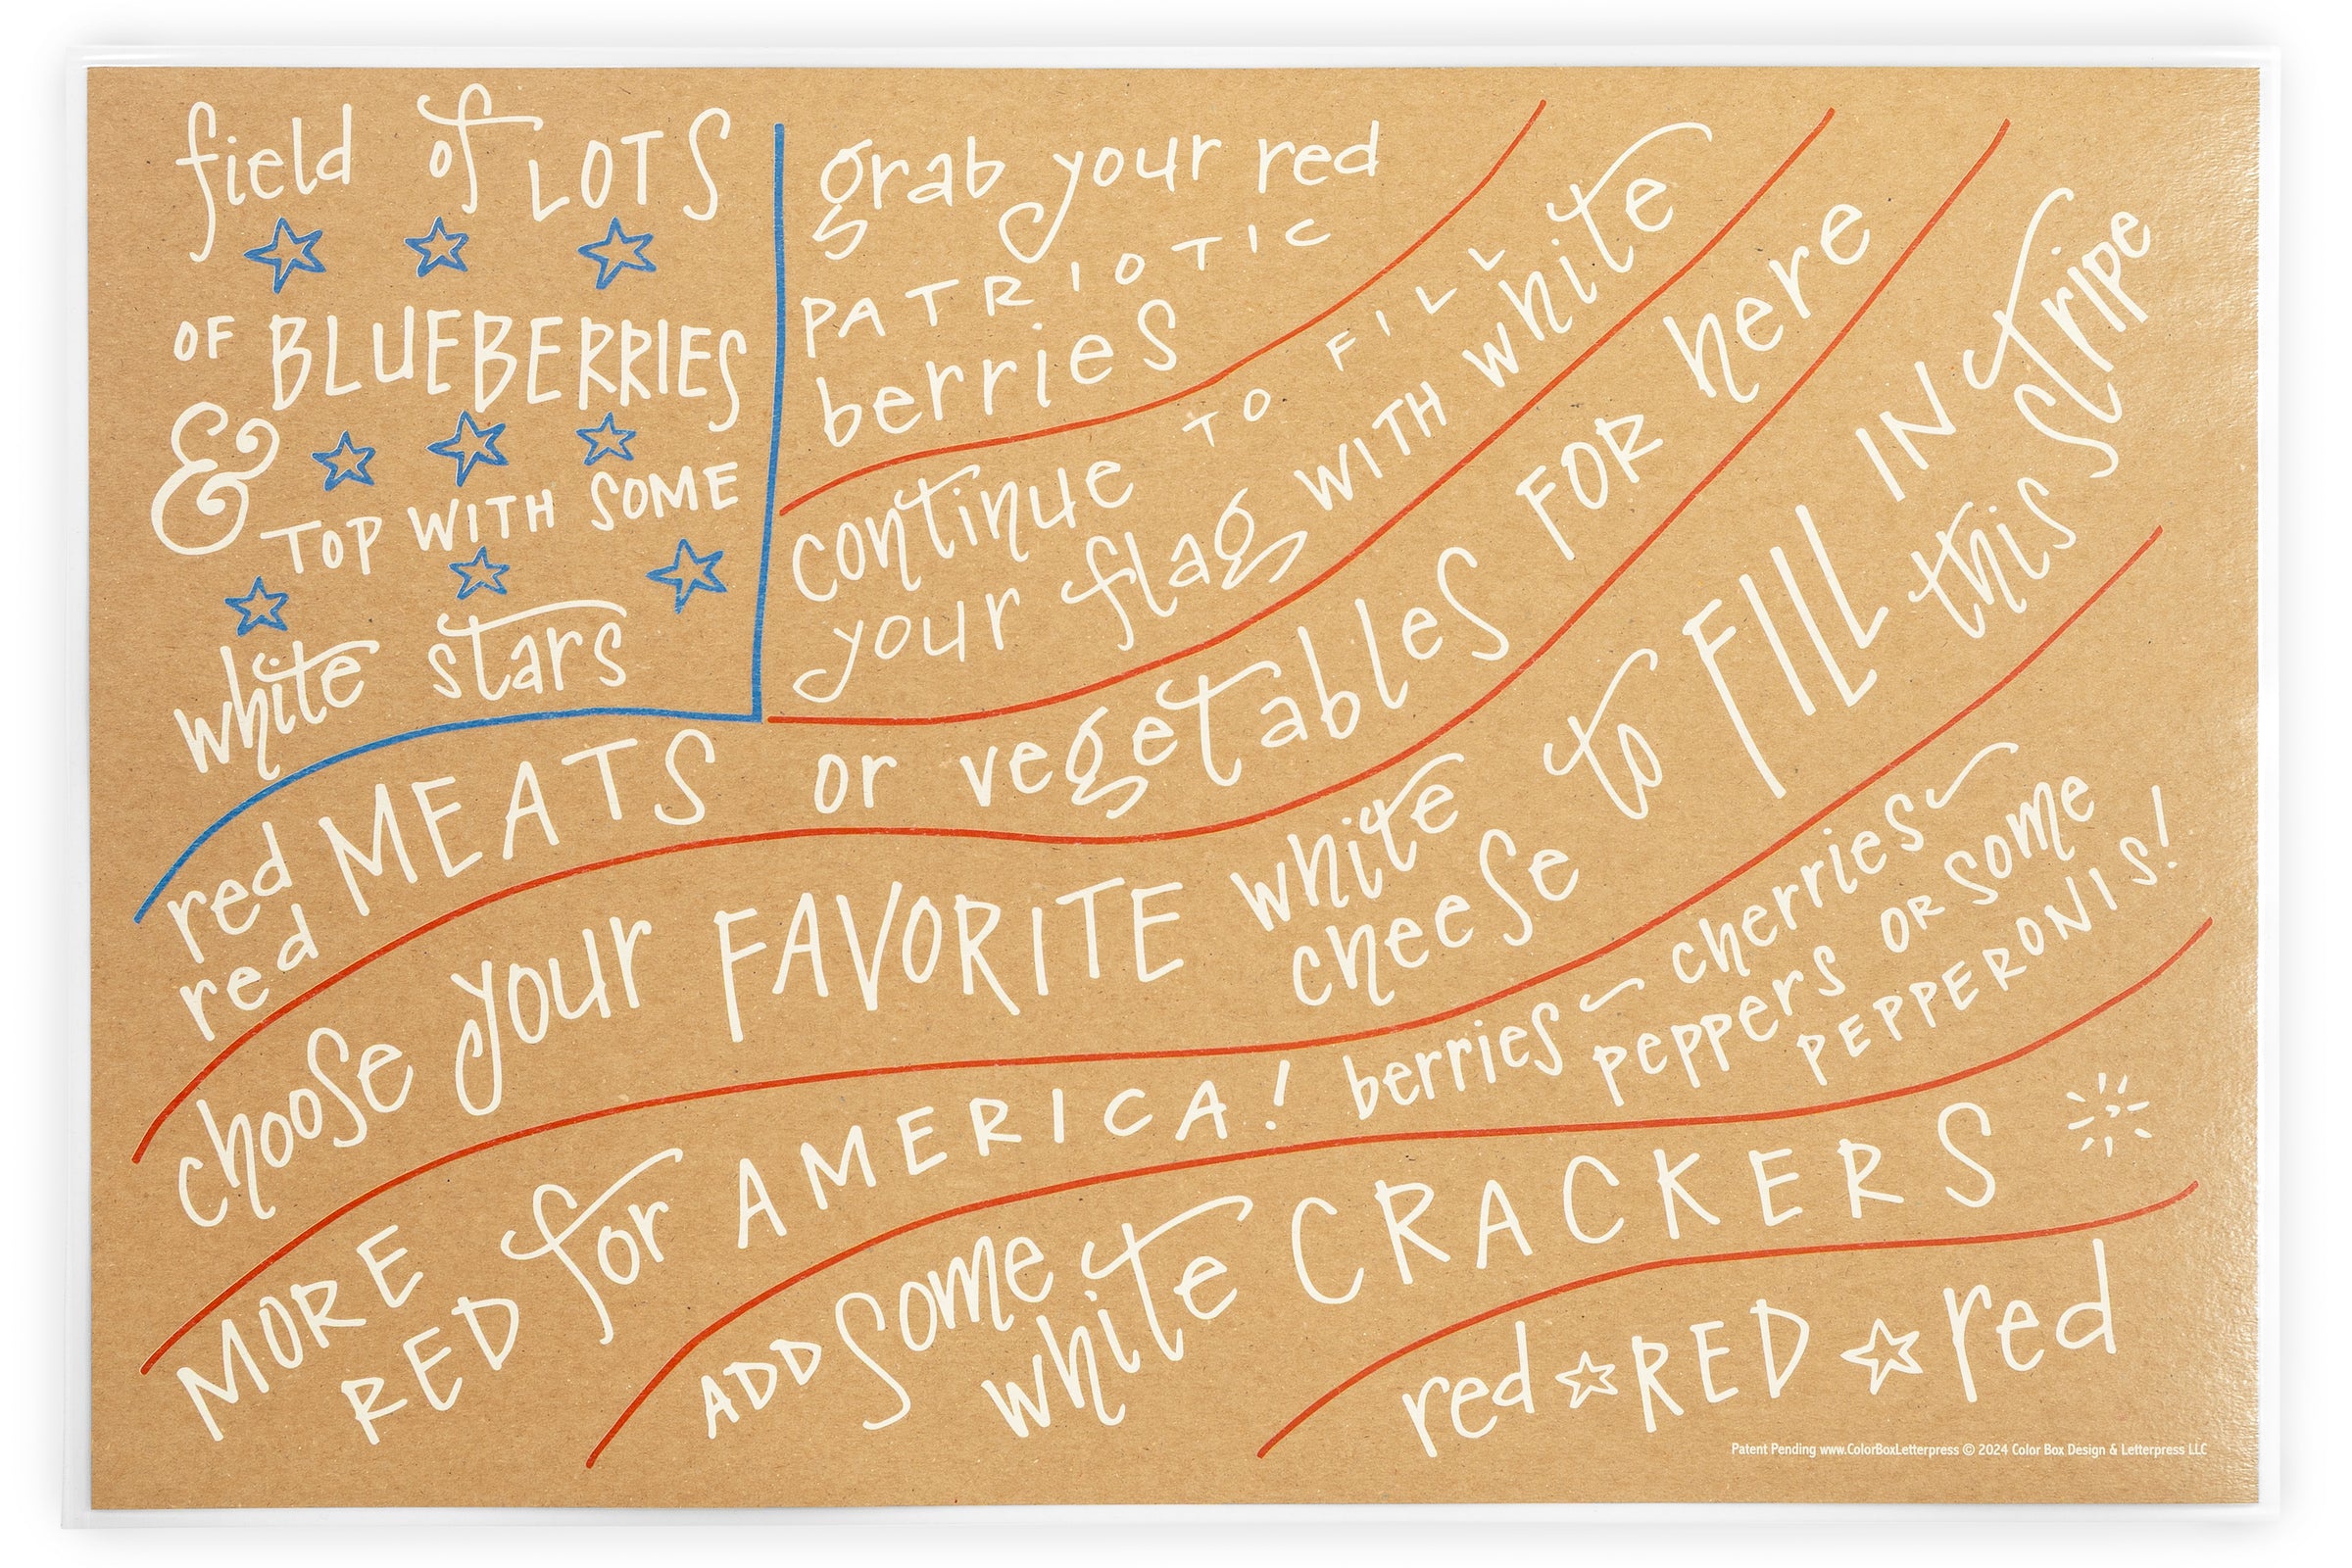 field of LOTS
OF BLUEBERRIES
& TOP WITH SOME
white stars
grab your red
PATRIOTIC
berries
continue TO FILL
your flag WITH white
red MEATS or vegetables FOR here
red
choose your FAVORITE white cheese to FILL IN this stripe
MORE RED for AMERICA! berries cherries
peppers OR some
PEPPERONIS!
ADD some white CRACKERS
red RED red
Patent Pending www.ColorBoxLetterpress © 2024 Color Box Design & Letterpress LLC